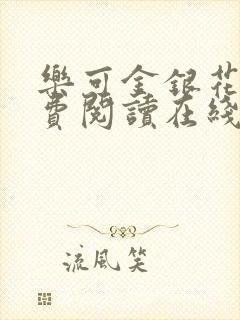 樂可金銀花
費閱讀在綫
流風笑